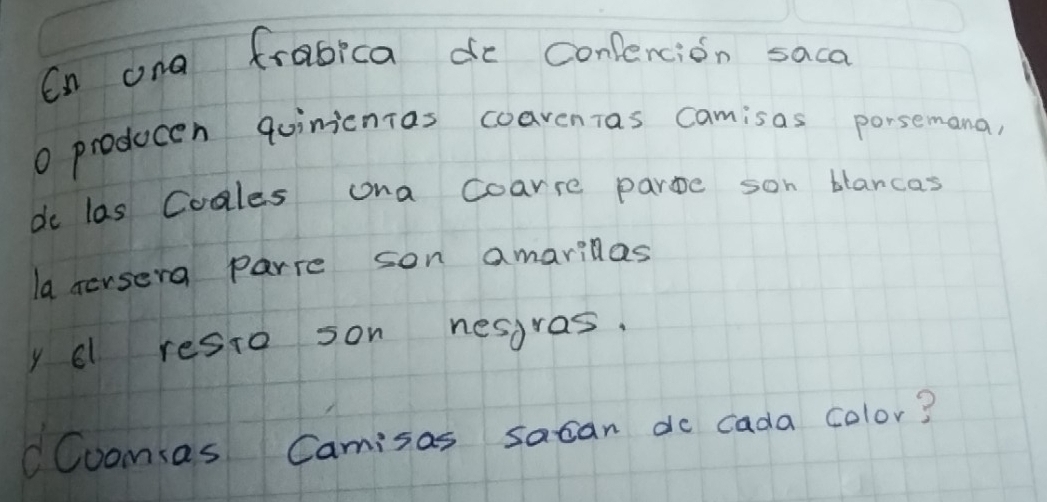 En una frabica de Confención saca
o producen quinientas coarentas camisas porsemana,
de las Cuales una Coarte parte son blancas
la tersera parte son amarillas
y el resto son nesgras.
¿Cuantas Camisas sacan de cada color?